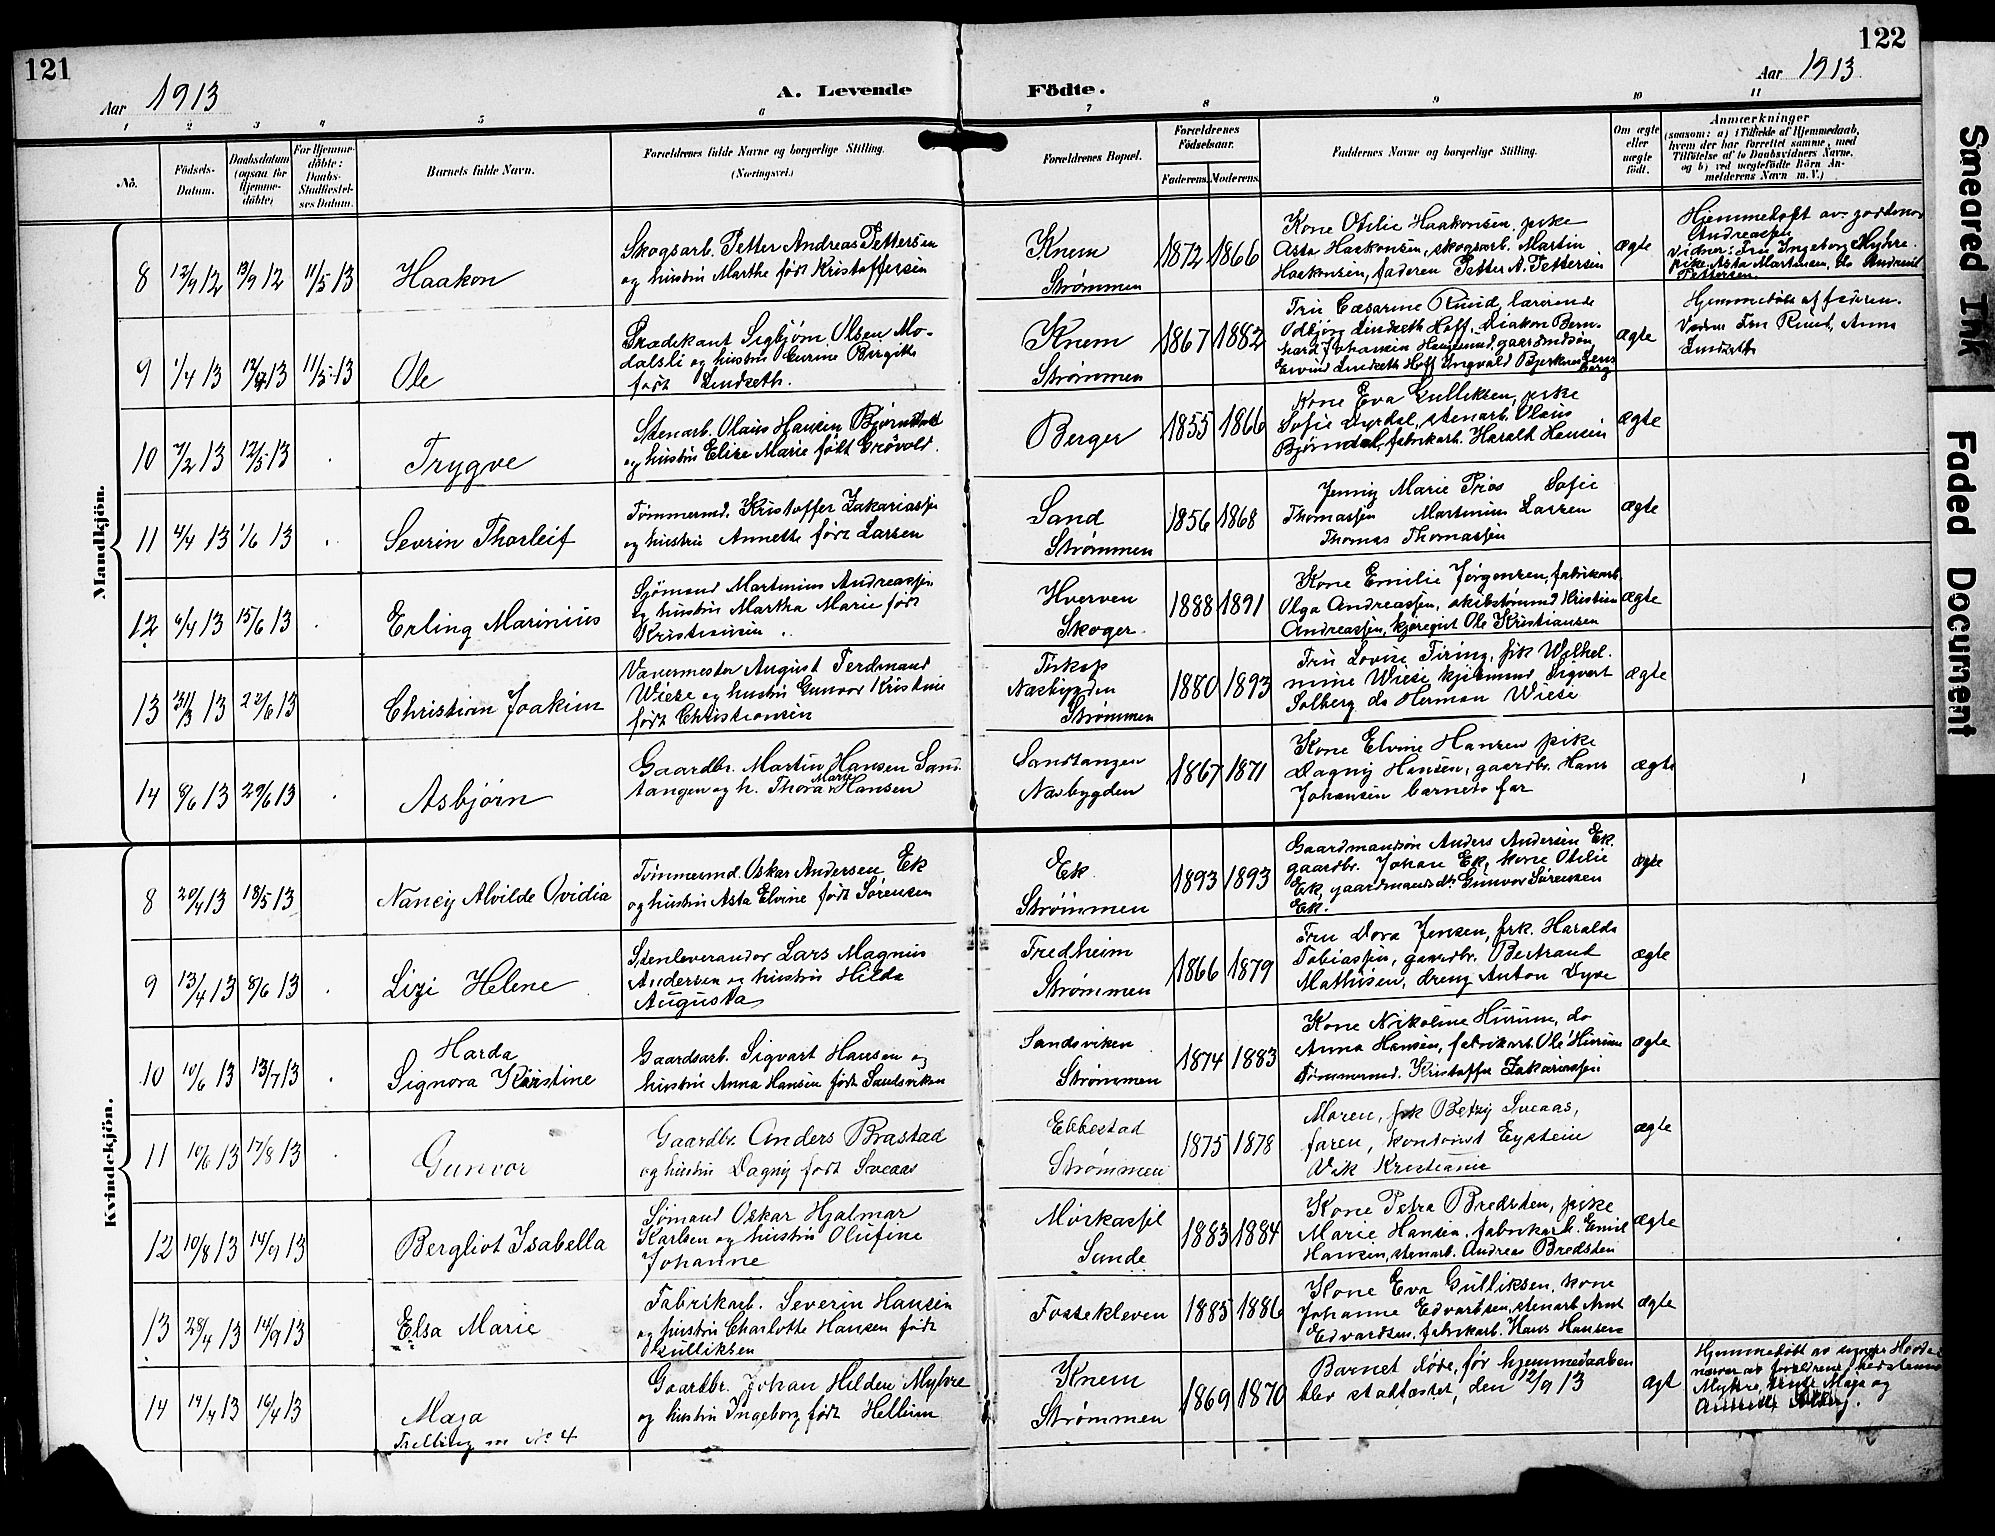 121
122
Aar 1913
A. Levende
Födte.
Aar 1913
1
2
3
4
5
6
7
8
9
10
11
No.
Födsels-
Datum.
Daabsdatum
(ogsaa for
Hjemme-
döbte)
For Hjemme-
döbte:
Daabs-
Stadfæstel-
ses Datum.
Barnets fulde Navn.
Forældrenes fulde Navne og borgerlige Stilling.
(Næringsvei.)
Forældrenes Bopæl.
Forældrenes
Födselsaar.
Faderens.
Moderens.
Faddernes Navne og borgerlige Stilling.
Om ægte
eller
uægte
födt.
Anmærkninger
(saasom: a) i Tilfælde af Hjemmedaab,
hvem der har forrettet samme, med
Tilføielse af to Daabsvidners Navne,
og b) ved uægtefödte Börn An-
melderens Navn m. V.)
Mandkjön.
8
12/9 12
13/9 12
11/5 13
Haakon
Skogsarb. Petter Andreas Pettersen
og hustru Marthe født Kristoffersen
Knem
Strømmen
1872
1866
Kone Otilie Haakonsen, pike
Asta Haakonsen, skogsarb. Martin
Haakonsen, faderen Petter A. Pettersen
ægte
Hjemmedøpt av jordmor
Andreassen
vidner: Fru Ingeborg Myhre
pike Asta Martinsen,
Pettersen
9
1/4 13
13
11/5 13
Ole
Prædikant Sigbjørn Olsen Mo-
dalsli og hustru Gurine Birgitte
født Lindseth.
Knem
Strømmen
1867
1882
Fru Cæsarine Ruud, lærerinde
Odbjørg Lindseth Hoff, Diakon Bern-
hard Johansen gaardmdsøn
Eivind Lindseth Hoff Ingvald
ægte
Hjemmedøbt af faderen.
Vidner Fru Ruud, Anna
Lindseth
10
7/2 13
12/5 13
Trygve
Stenarb. Olaus Hansen
og hustru Elise Marie født Grøvold.
Berger
1855
1866
Kone Eva Gulliksen, pike
Sofie Dyrdal, stenarb. Olaus
Bjørndal, fabrikarb. Harald Hansen
ægte
11
4/4 13
1/6 13
Sevrin Thorleif
Tømmermd. Kristoffer Zakariassen
og hustru Annette født Larsen
Sand
Strømmen
1856
1868
Jenny Marie Sofie
Thomassen Martinius Larsen
Thomas Thomassen
ægte
12
6/4 13
15/6 13
Erling Marinius
Sjømand Martinius Andreassen
og hustru Martha Marie født
Kristiansen
Hverven
Skoger
1888
1891
Kone Emilie Jørgensen, fabrikarb.
Olga Andreassen, skibstømmd Kristian
Andreassen, kjøregut Ole Kristiansen
ægte
13
31/3 13
22/6 13
Christian Joakim
Værmester August Ferdinand
Wiese og hustru Gunvor Kristine
født Christiansen
Næsbygden
Strømmen
1880
1893
Fru Lovise Tiring, frk Wilhel-
mine Wiese Sigvart
Solberg do Herman Wiese
ægte
14
8/6 13
29/6 13
Asbjørn
Gaardbr. Martin Hansen Sand-
tangen og h. Thora Marie Hansen
Sandtangen
Næsbygden
1867
1871
Kone Elvine Hansen pike
Dagny Hansen, gaardbr. Hans
Johansen barnets far
ægte
Kvindekjön.
8
20/4 13
18/5 13
Nancy Alvilde Ovidia
Tømmermd. Oskar Andersen Ek
og hustru Asta Elvine født Sørensen
Ek
Strømmen
1893
1893
Gaardmandsøn Anders Andersen Ek,
gaardbr. Johan Ek, kone Otilie
Ek, gaardmandsdtr Gunvor Sørensen
Ek.
ægte
9
13/4 13
8/6 13
Lizi Helene
Stenleverandør Lars Magnus
Andersen og hustru Hilda
Augusta
Fredheim
Strømmen
1866
1879
Fru Dora Jensen, frk. Haralda
Tobiassen, gaardbr. Bertrand
Mathisen, dreng Anton Dyse
ægte
10
10/6 13
13/7 13
Harda
Signora Kristine
Gaardsarb. Sigvart Hansen og
hustru Anna Hansen født Sandsviken
Sandsviken
Strømmen
1874
1883
Kone Nikoline Hurum, do
Anna Hansen, fabrikarb. Ole Hurum
Tømmermd. Kristoffer Zakariassen
ægte
11
10/6 13
17/8 13
Gunvor
Gaardbr. Anders Brastad
og hustru Dagny født Sveaas
Ebbestad
Strømmen
1875
1878
Moren, frk Betzy Sveaas,
faren, kontorist Eystein
Vik Kristiania
ægte
12
10/8 13
14/9 13
Bergliot Isabella
Sømand Oskar Hjalmar
Karlsen og hustru Olufine
Johanne
Mørkassel
Sande
1883
1884
Kone Petra Bredsten, pike
Marie Hansen, fabrikarb. Emil
Hansen, stenarb. Andreas Bredsten
ægte
13
28/4 13
14/9 13
Elsa Marie
Fabrikarb. Severin Hansen
og hustru Charlotte Hansen født
Gulliksen
Fossekleven
1885
1886
Kone Eva Gulliksen, kone
Johanne Edvartsen, stenarb
Edvardsen, fabrikarb. Hans Hansen
ægte
14
14/4 13
16/4 13
Maja
Tvilling m No 4
Gaardbr. Johan Hilden Myhre
og hustru Ingeborg født Hellum
Knem
Strømmen
1869
1870
Barnet døde, før hjemmedaaben
blev stadfæstet, den 12/9 13
ægt
Hjemmedøbt av
av forældrene,
Myhre, Maja og
Smeared Ink
Faded Document